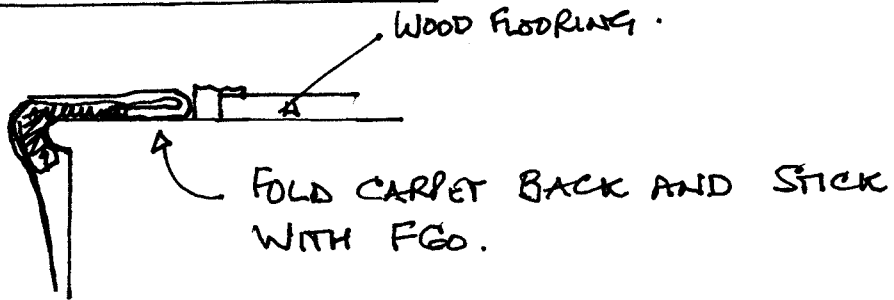 WOOD FLOORING.
FOLD CARPET BACK AND STICK
WITH F60.